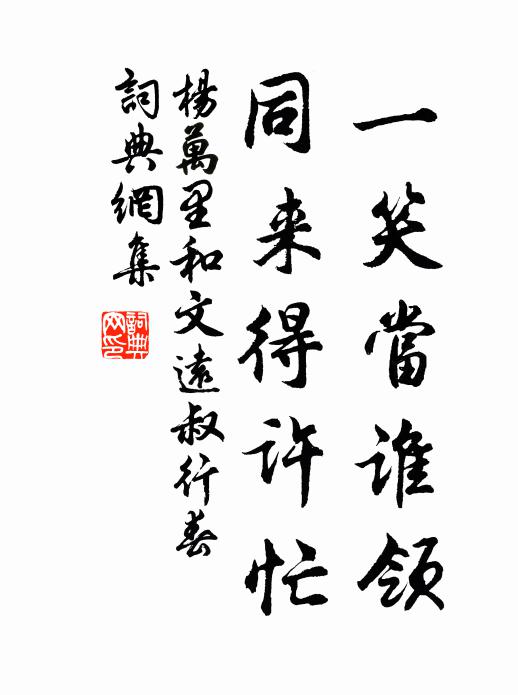 一笑當誰領
同来得許忙
楊萬里和文遠叔行春
詞典網集
詞典網印